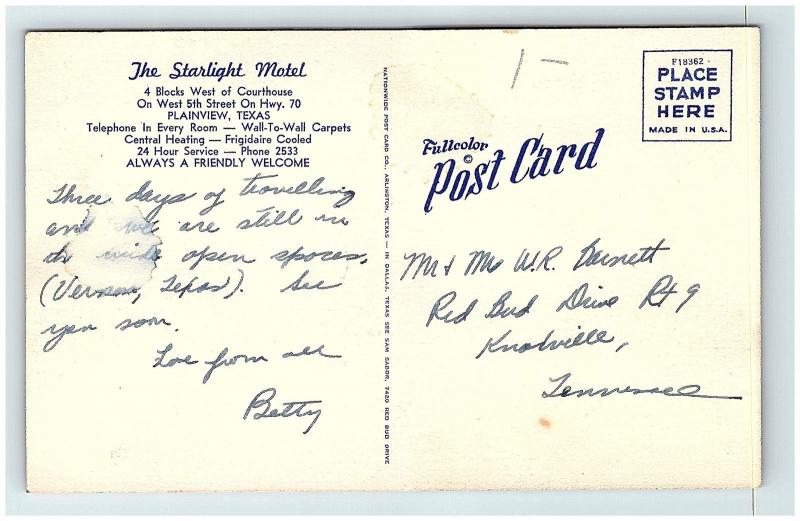 The Starlight Motel
4 Blocks West of Courthouse
On West 5th Street On Hwy. 70
PLAINVIEW, TEXAS
Telephone In Every Room — Wall-To-Wall Carpets
Central Heating — Frigidaire Cooled
24 Hour Service — Phone 2533
ALWAYS A FRIENDLY WELCOME
Three days of travelling
and we are still in
the wide open spaces,
(Vernon, Texas). See
you soon.
Love from all
Betty
NATIONWIDE POST CARD CO., ARLINGTON, TEXAS — IN DALLAS, TEXAS SEE SAM SABOR, 7420 RED BUD DRIVE
1 —
F18362
PLACE
STAMP
HERE
MADE IN U.S.A.
Fullcolor
©
Post Card
Mr + Mrs W.R. Barnett
Red Bud Drive Rt 9
Knoxville,
Tennessee